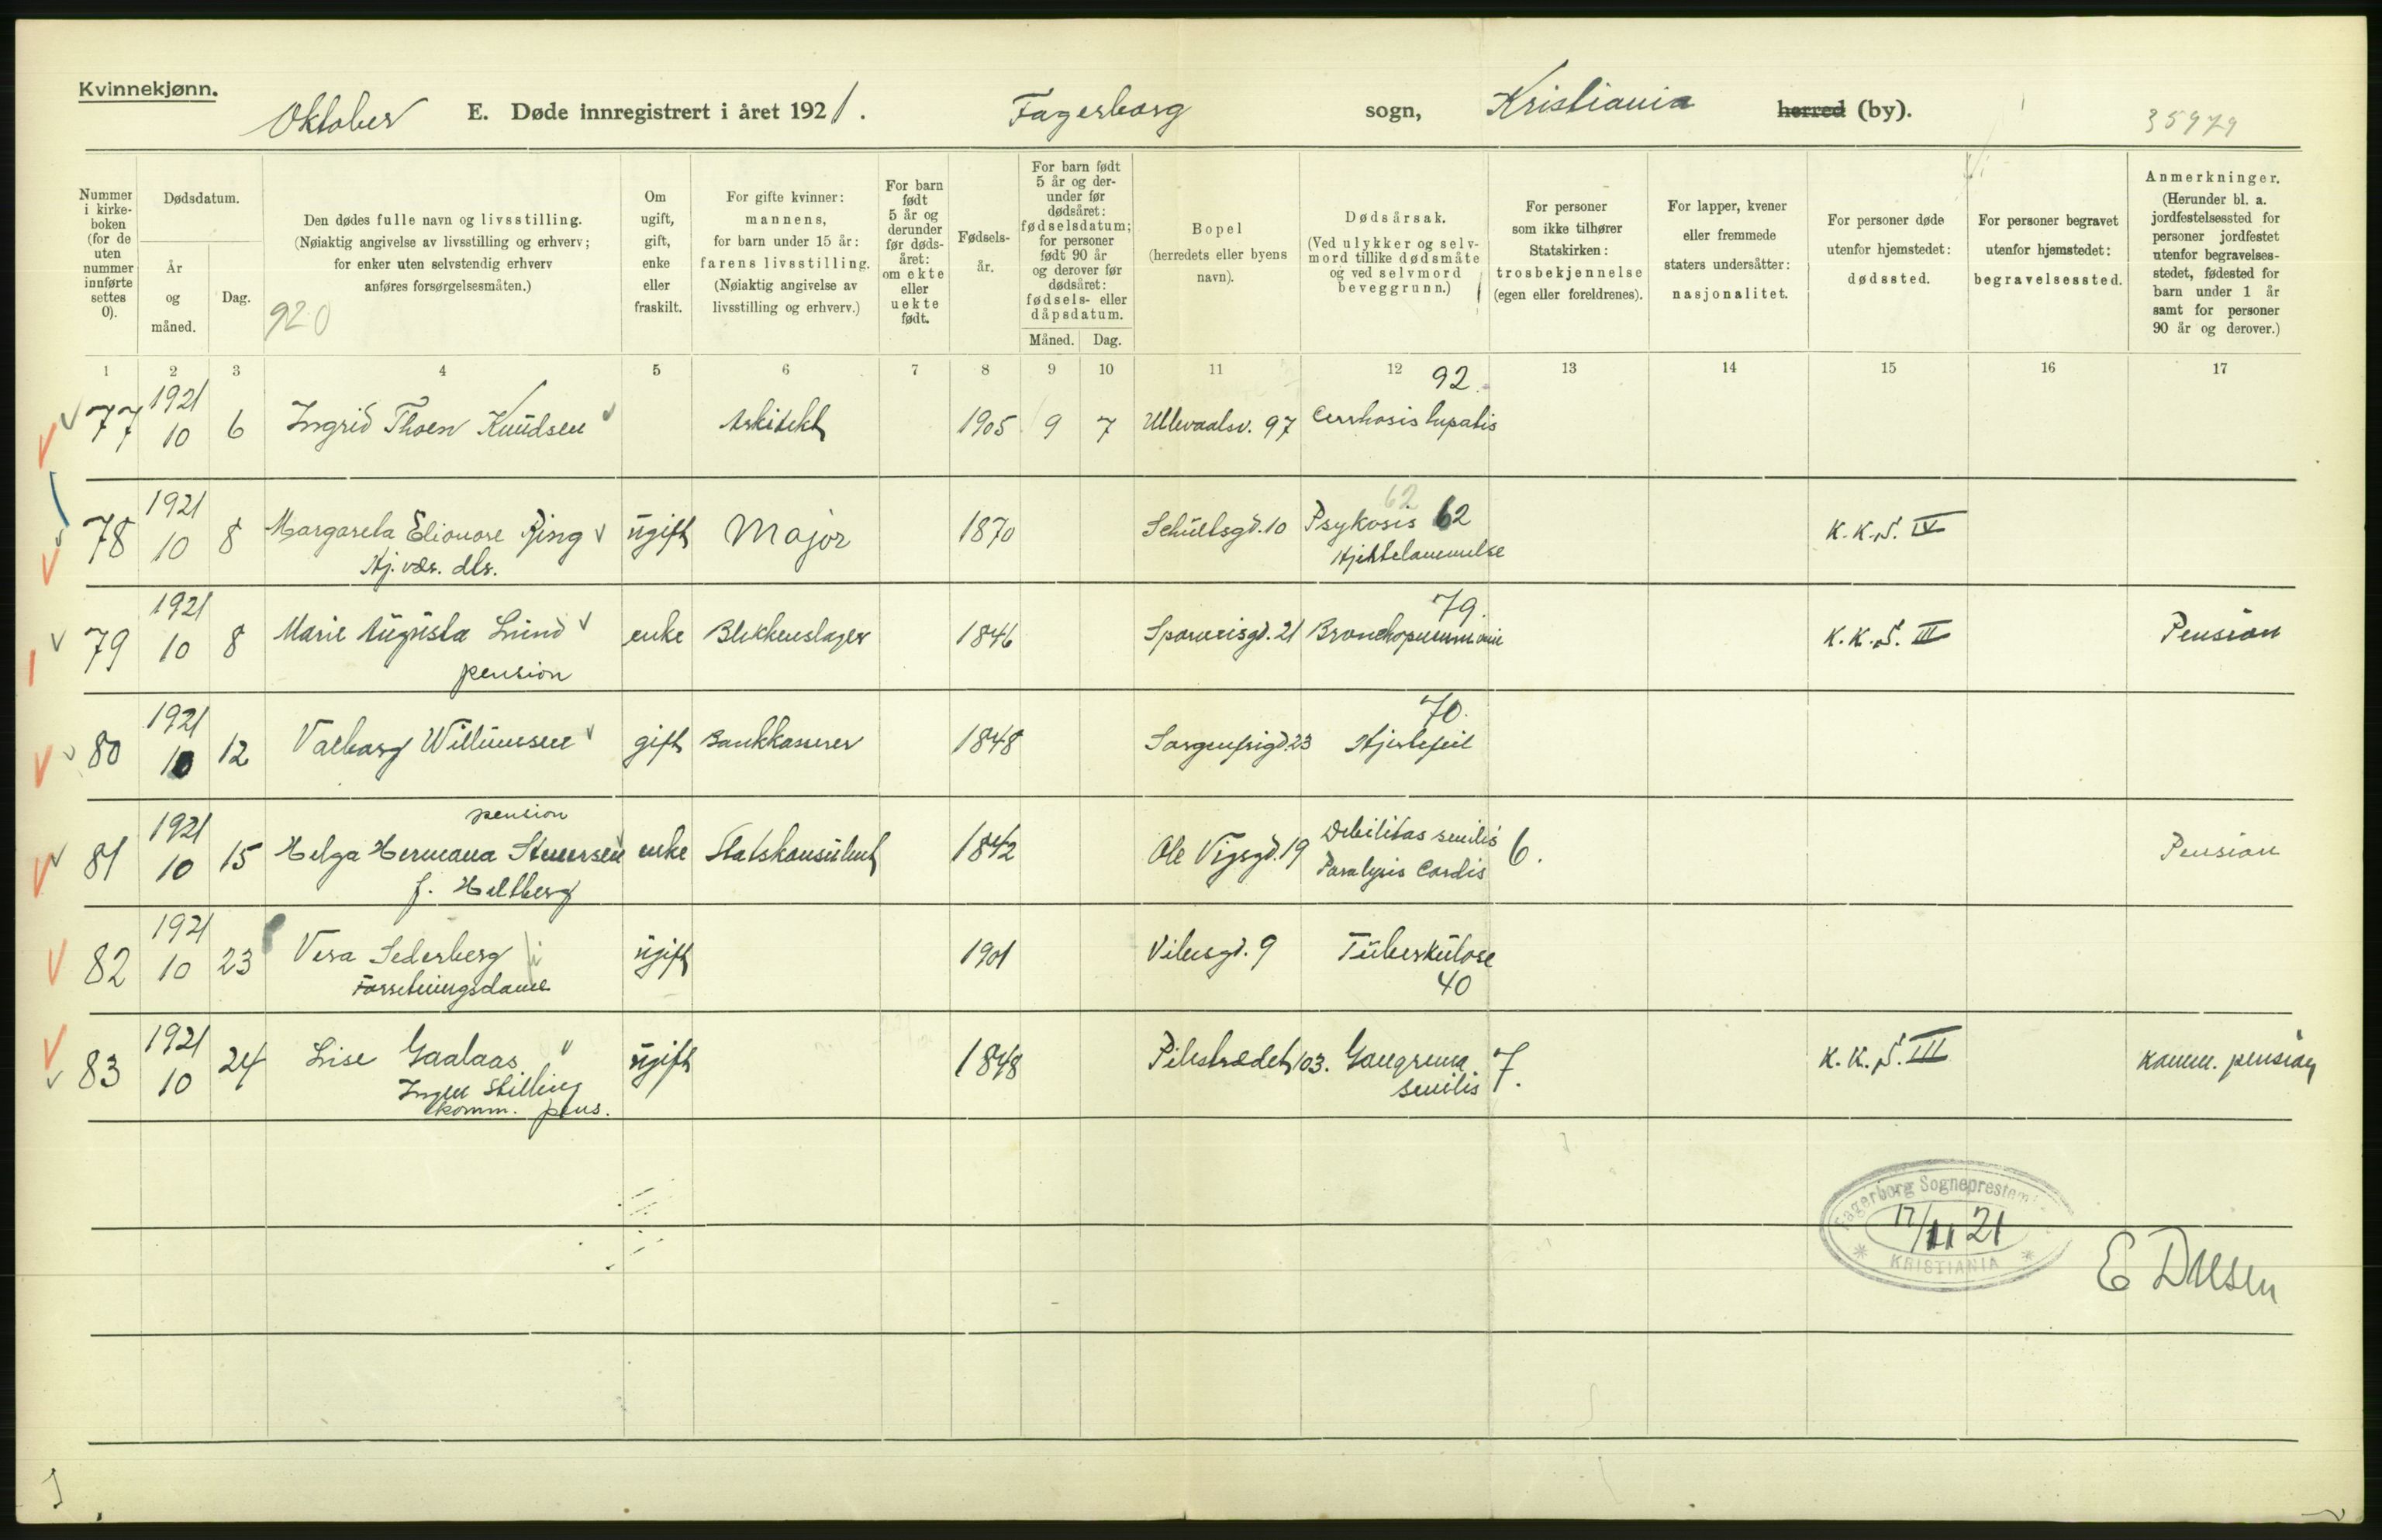 Kvinnekjønn.
Oktober E. Døde innregistrert i året 1921. Fagerborg sogn, Kristiania herred (by). 35979
Nummer i kirke-boken (for de uten nummer innførte settes 0).
Dødsdatum.
År og måned.
Dag.
Den dødes fulle navn og livsstilling.
(Nøiaktig angivelse av livsstilling og erhverv;
for enker uten selvstendig erhverv
anføres forsørgelsesmåten.)
920
Om ugift, gift, enke eller fraskilt.
For gifte kvinner:
mannens,
for barn under 15 år:
farens livsstilling.
(Nøiaktig angivelse av
livsstilling og erhverv.)
For barn født 5 år og derunder før døds-året: om ekte eller uekte født.
Fødsels-år.
For barn født 5 år og der-under før dødsåret: fødselsdatum; for personer født 90 år og derover før dødsåret: fødsels- eller dåpsdatum.
Måned. Dag.
Bopel
(herredets eller byens navn).
Dødsårsak.
(Ved ulykker og selv-mord tillike dødsmåte og ved selvmord beveggrunn.)
For personer som ikke tilhører Statskirken: trosbekjennelse (egen eller foreldrenes).
For lapper, kvener eller fremmede staters undersåtter: nasjonalitet.
For personer døde utenfor hjemstedet: dødssted.
For personer begravet utenfor hjemstedet: begravelsessted.
Anmerkninger.
(Herunder bl. a. jordfestelsessted for personer jordfestet utenfor begravelses-stedet, fødested for barn under 1 år samt for personer 90 år og derover.)
1 2 3 4 5 6 7 8 9 10 11 12 13 14 15 16 17
77 1921 10 6 Ingrid Thoen Knudsen Arkitekt 1905 9 7 Ullevaalsv. 97 92. Cirrhosis hepatis
78 1921 10 8 Margareta Elionore Ring ugift Major 1870 Schultsgd. 10 62 Psykosis 62 K.K.S. IV
Hj. vær. dtr. Hjertelammelse
79 1921 10 8 Marie Augusta Lund enke Blikkenslager 1846 79. Bronchopneumonie K.K.S. III Pension
pension
80 1921 10 12 Valborg Willumsen gift Bankkasserer 1848 Sorgenfrigd. 23 70. Hjertefeil
pension
81 1921 10 15 Helga Hermana enke Statskonsulent 1842 Ole Vigsgd. 19 Debilitas senilis 6.
f. Heltberg Paralysis Cordis Pension
82 1921 10 23 Vera Sederberg ugift 1901 Vibesgd. 9 Tuberkulose
Forretningsdame 40
83 1921 10 24 Lise Gaalaas ugift 1848 Pilestrædet 103. Gangrena senilis 7. K.K.S. III komm. pension
Ingen stilling
komm. pens.
Fagerborg Sogneprestem
17/11 21
KRISTIANIA